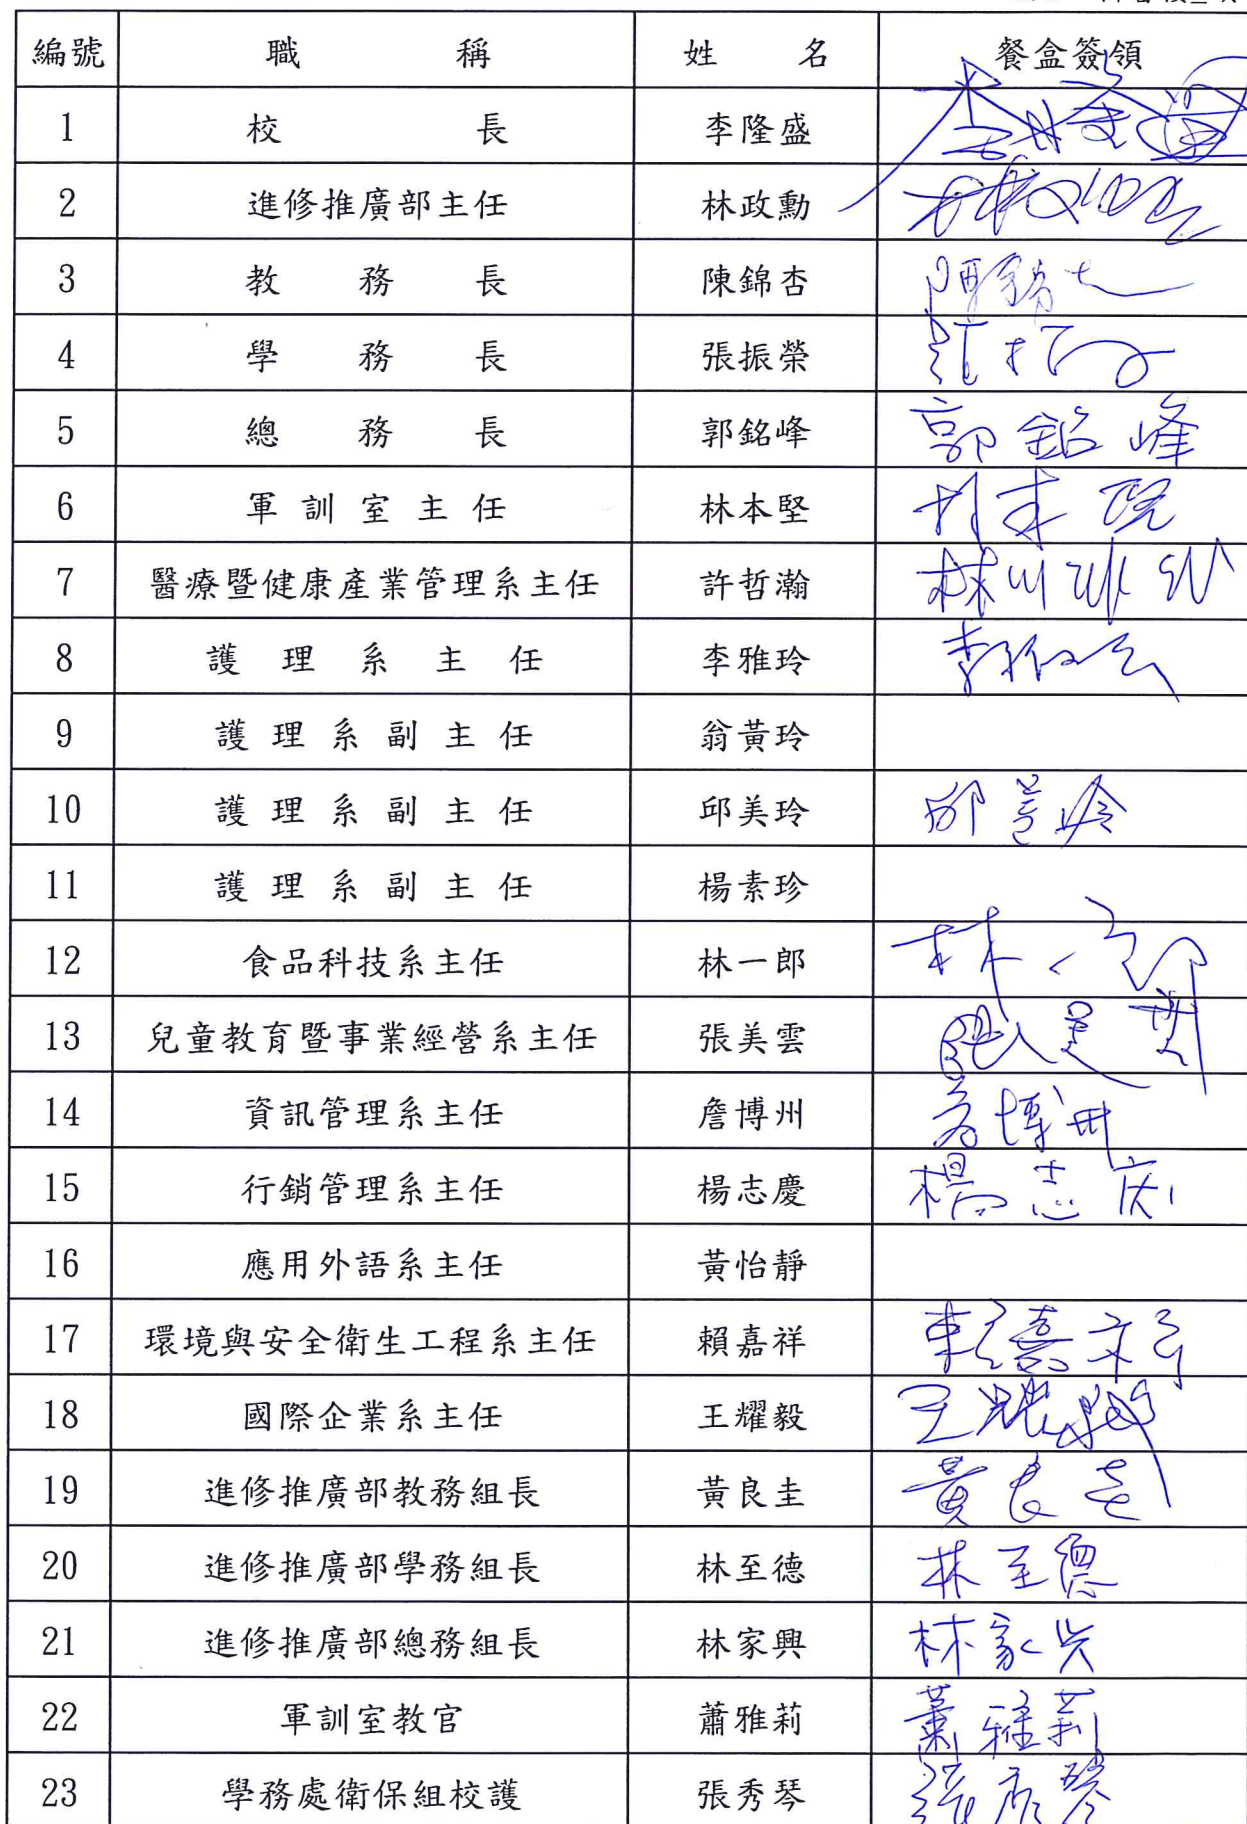 編號 職稱 姓名 餐盒簽領
1 校長 李隆盛
2 進修推廣部主任 林政勳
3 教務長 陳錦杏
4 學務長 張振榮
5 總務長 郭銘峰 郭銘峰
6 軍訓室主任 林本堅
7 醫療暨健康產業管理系主任 許哲瀚
8 護理系主任 李雅玲
9 護理系副主任 翁黃玲
10 護理系副主任 邱美玲
11 護理系副主任 楊素珍
12 食品科技系主任 林一郎
13 兒童教育暨事業經營系主任 張美雲
14 資訊管理系主任 詹博州
15 行銷管理系主任 楊志慶 楊志慶
16 應用外語系主任 黃怡靜
17 環境與安全衛生工程系主任 賴嘉祥
18 國際企業系主任 王耀毅
19 進修推廣部教務組長 黃良圭 黃良圭
20 進修推廣部學務組長 林至德 林至德
21 進修推廣部總務組長 林家興 林家兴
22 軍訓室教官 蕭雅莉 蕭雅莉
23 學務處衛保組校護 張秀琴 張秀琴